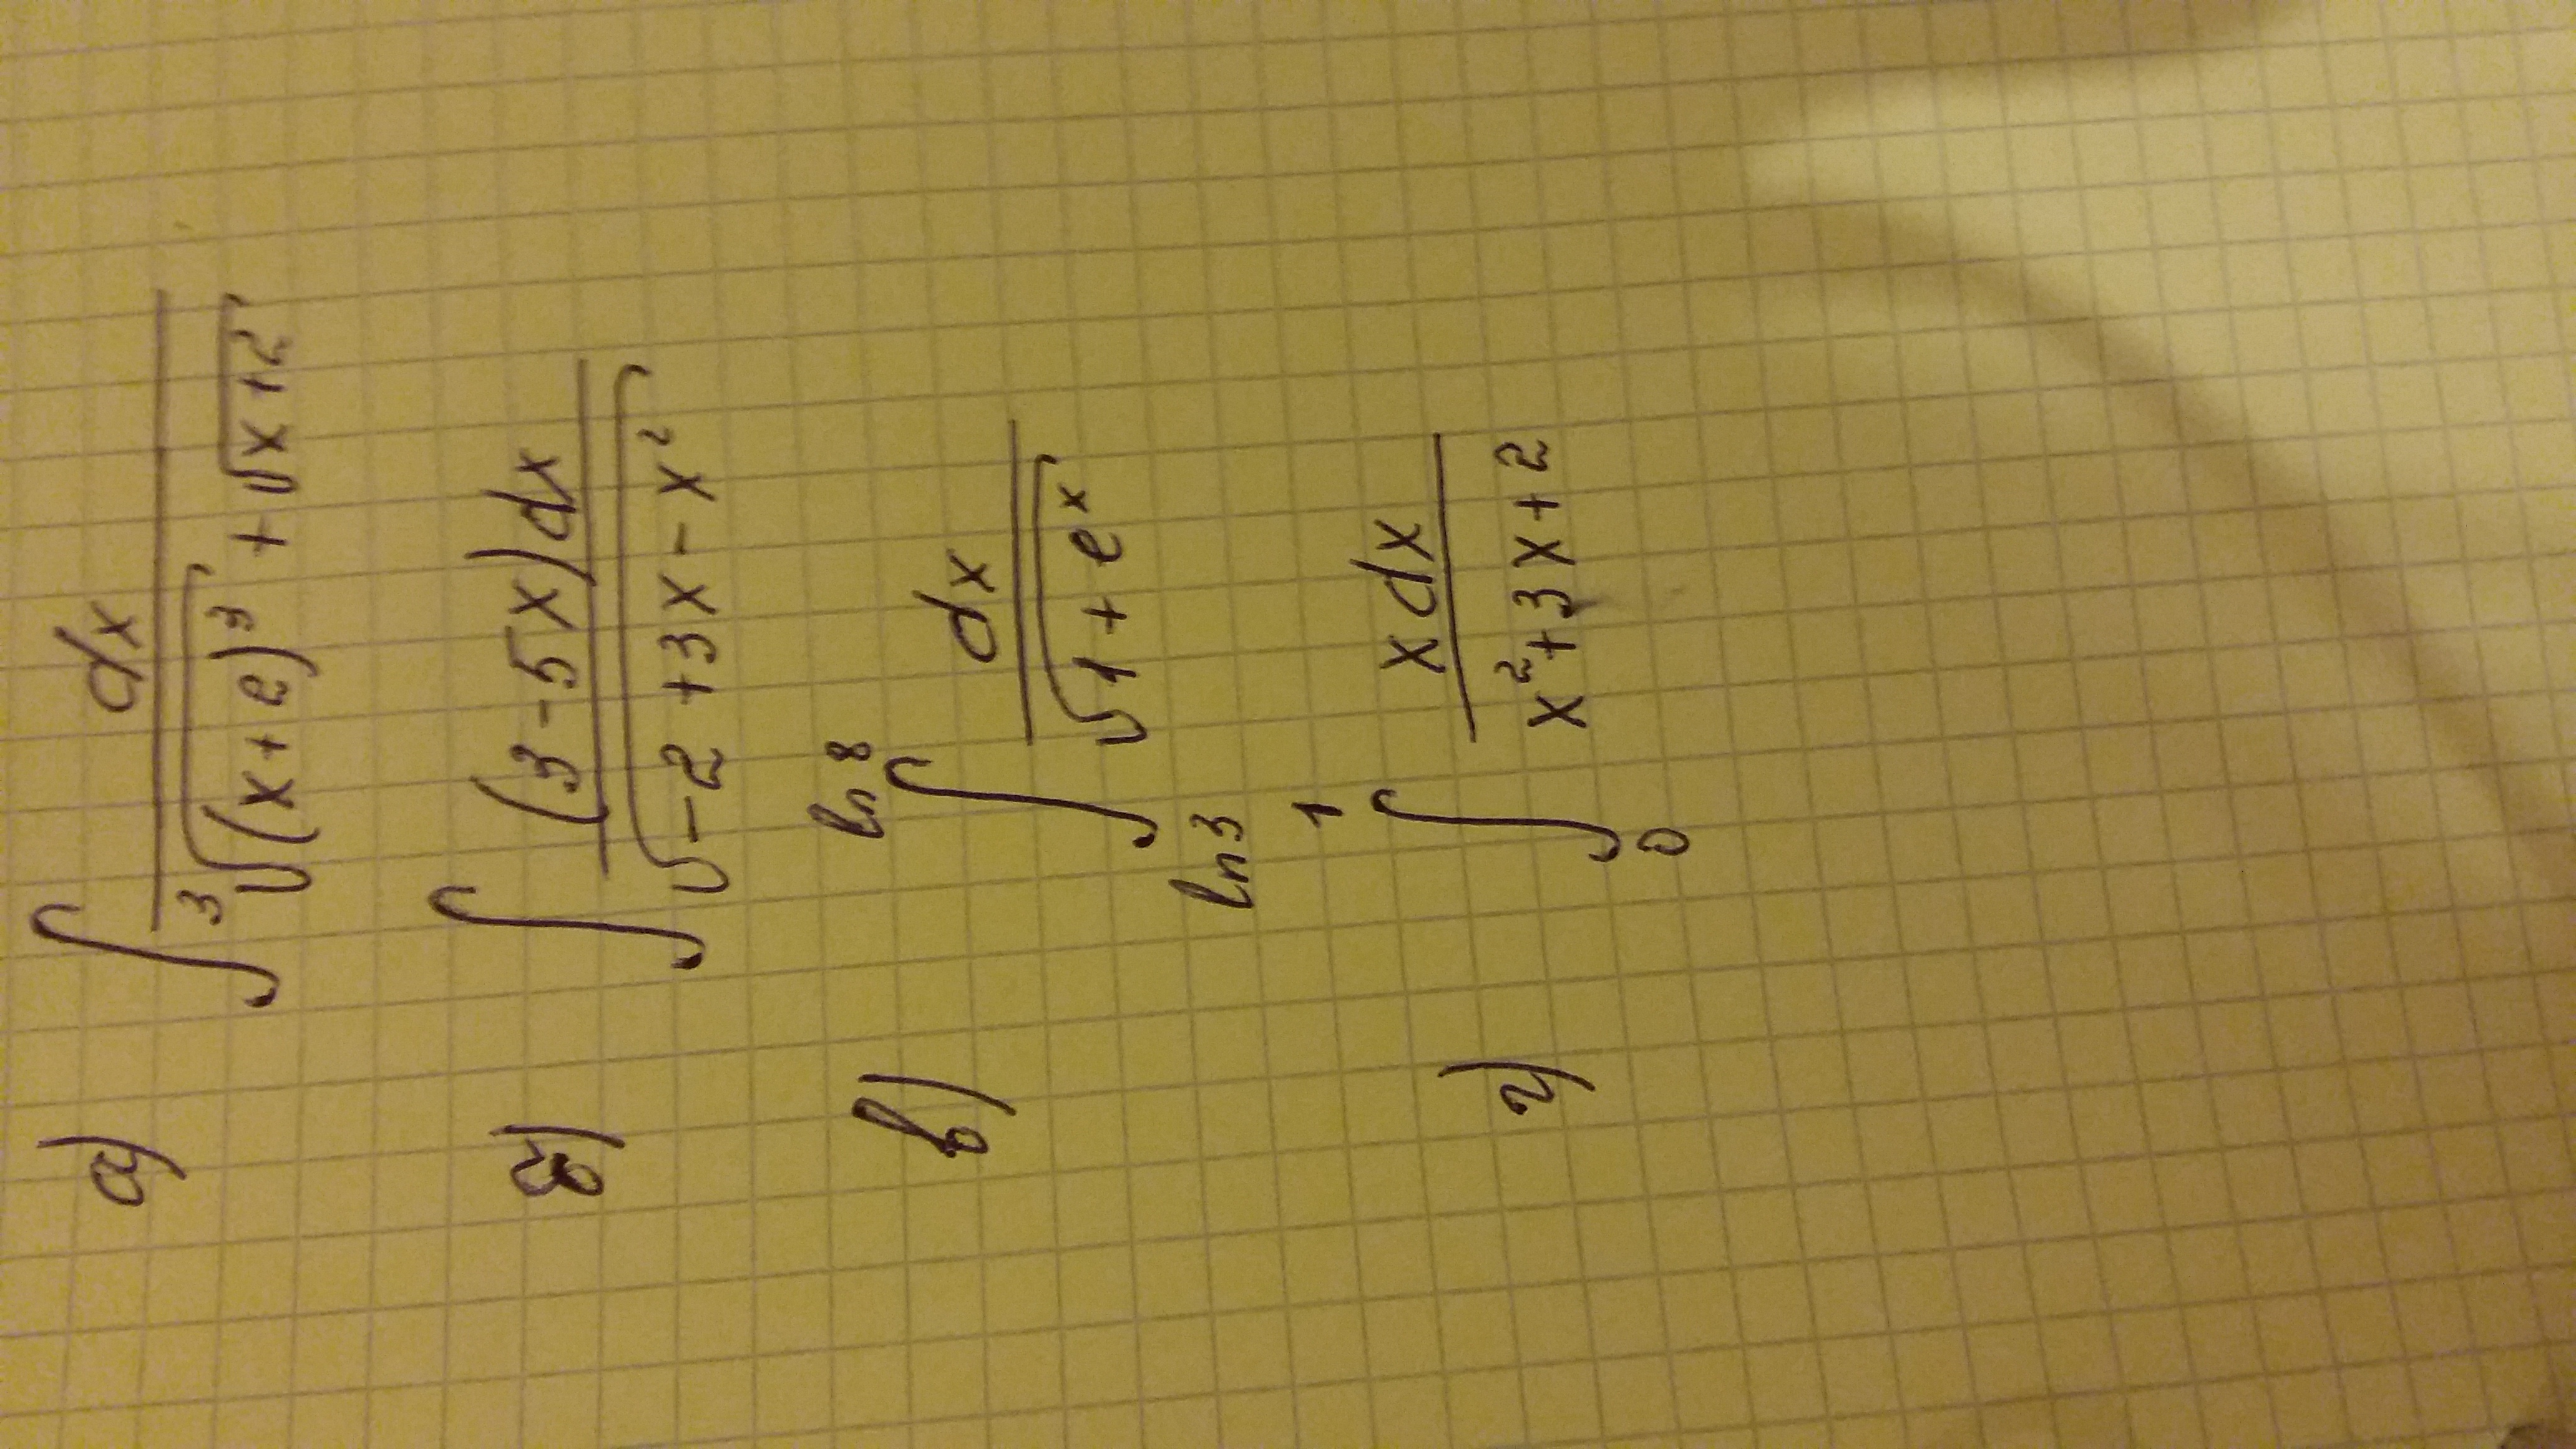 а) ∫ dx / (³√(x+2)³ + √x+2)
б) ∫ (3-5x)dx / √-2+3x-x²
в) ∫_{ln3}^{ln8} dx / √1+eˣ
г) ∫_0^1 xdx / x²+3x+2